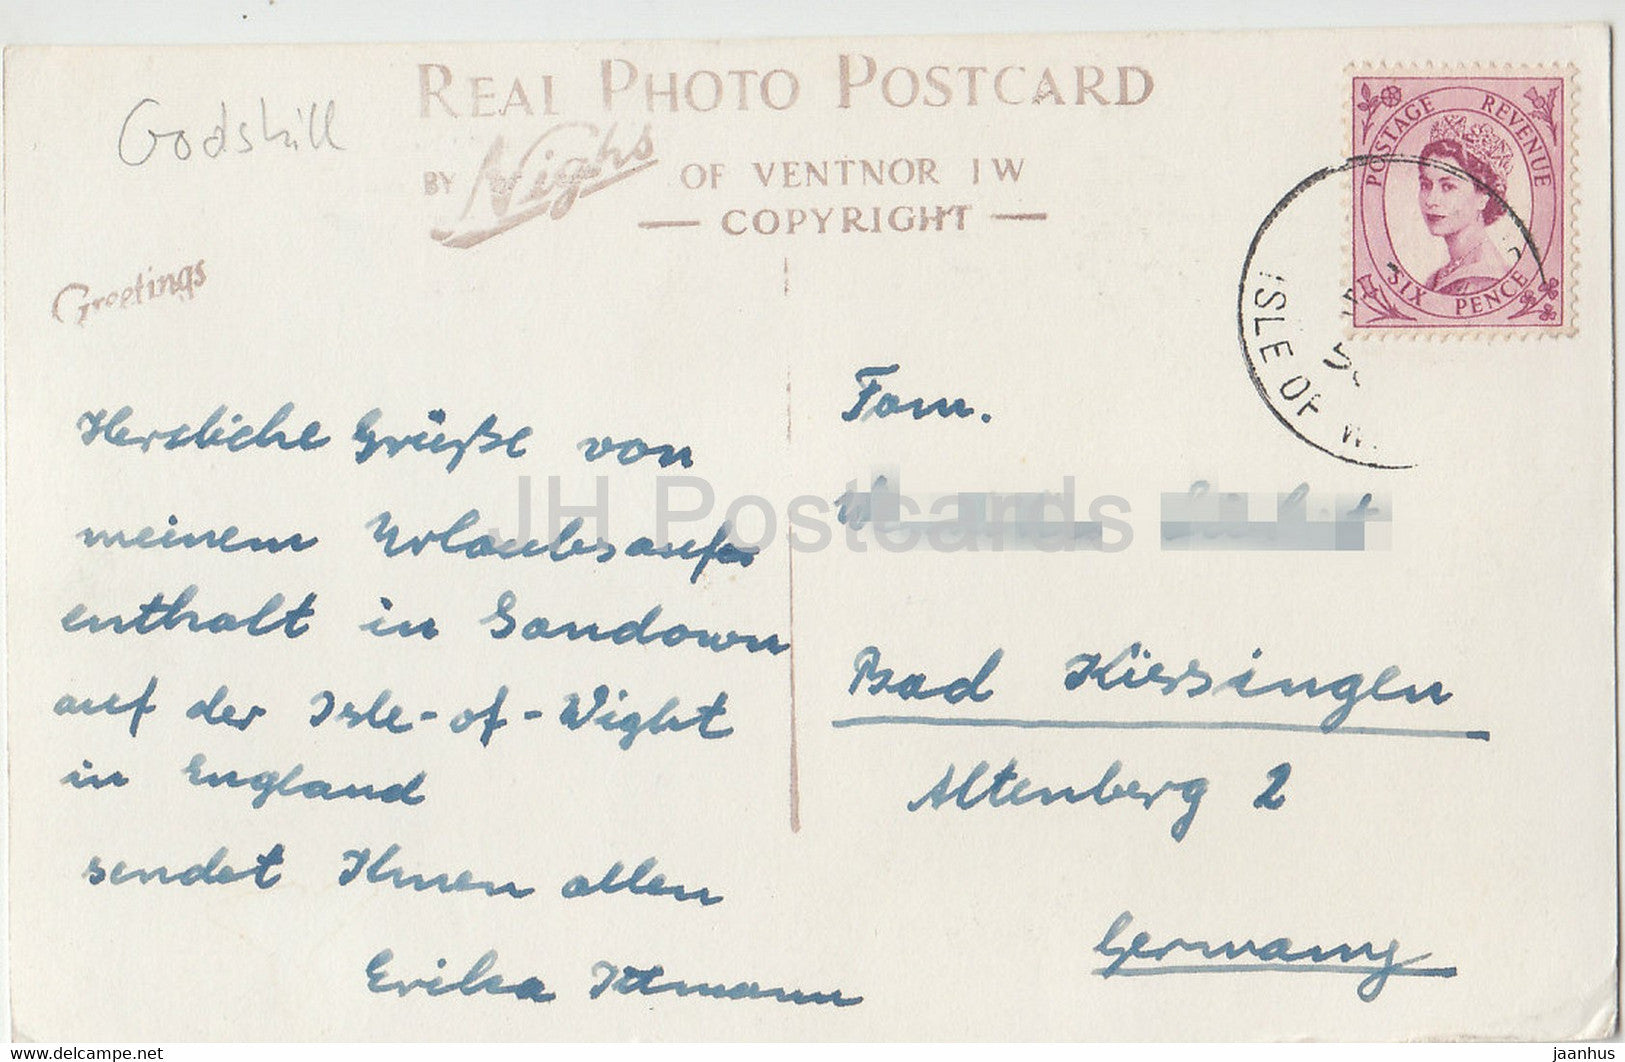 Godshill
REAL PHOTO POSTCARD
BY Nighs OF VENTNOR I W
COPYRIGHT
Greetings
POSTAGE REVENUE
SIX PENCE
ISLE OF W.
Herzliche Grüße von
meinem Urlaubsauf-
enthalt in Sandown
auf der Isle-of-Wight
in England
sendet Ihnen allen
Erika Ittmann
Fam.
Bad Kissingen
Altenberg 2
Germany
JH Postcards
delcampe.net
jaanhus